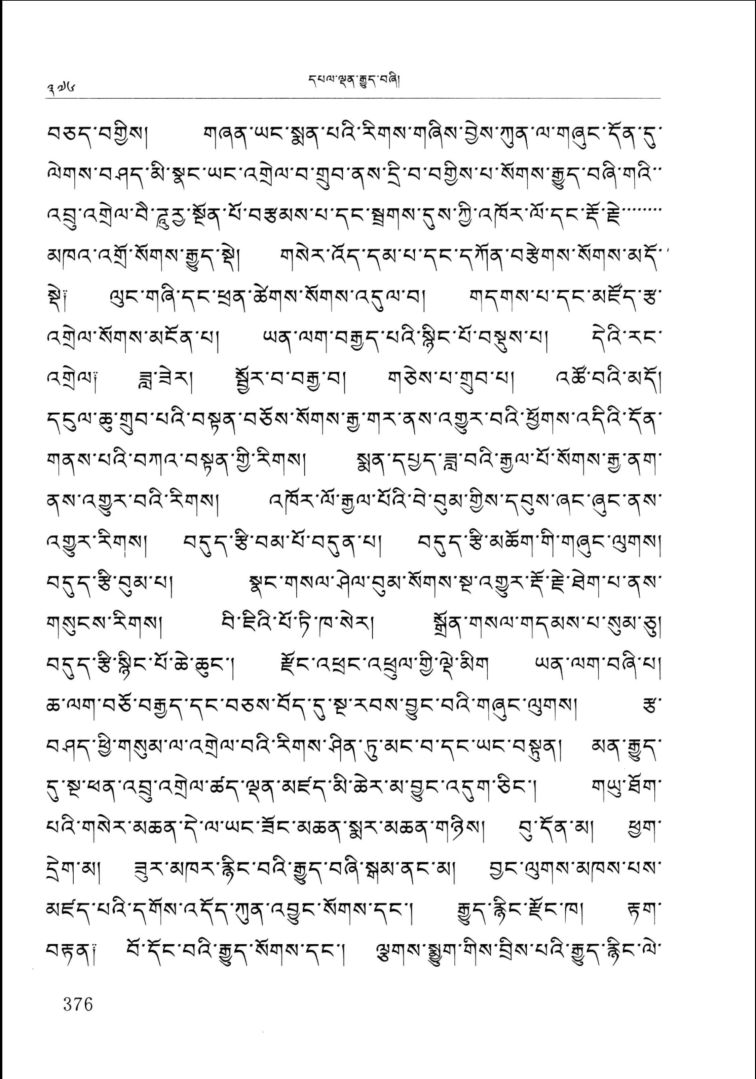 ༣༧༦ དཔལ་ལྡན་རྒྱུད་བཞི།
བཅད་བགྱིས། གཞན་ཡང་སྨན་པའི་རིགས་གཞིས་བྱེས་ཀུན་ལ་གཞུང་དོན་དུ་
ལེགས་བཤད་མི་སྣང་ཡང་འགྲེལ་བ་གྲུབ་ནས་དྲི་བ་བགྱིས་པ་སོགས་རྒྱུད་བཞི་གའི་
འབྲུ་འགྲེལ་བཻ་ཌཱུརྱ་སྔོན་པོ་བརྩམས་པ་དང་སྦྲགས་དུས་ཀྱི་འཁོར་ལོ་དང་རྡོ་རྗེ་
མཁའ་འགྲོ་སོགས་རྒྱུད་སྡེ། གསེར་འོད་དམ་པ་དང་དཀོན་བརྩེགས་སོགས་མདོ་
སྡེ། ལུང་གཞི་དང་ཕྲན་ཚེགས་སོགས་འདུལ་བ། གདགས་པ་དང་མཛོད་རྩ་
འགྲེལ་སོགས་མངོན་པ། ཡན་ལག་བརྒྱད་པའི་སྙིང་པོ་བསྡུས་པ། དེའི་རང་
འགྲེལ། ཟླ་ཟེར། སྦྱོར་བ་བརྒྱ་བ། གཅེས་པ་གྲུབ་པ། འཚོ་བའི་མདོ།
དངུལ་ཆུ་གྲུབ་པའི་བསྟན་བཅོས་སོགས་རྒྱ་གར་ནས་འགྱུར་བའི་ཕྱོགས་འདིའི་དོན་
གནས་པའི་བཀའ་བསྟན་གྱི་རིགས། སྨན་དཔྱད་ཟླ་བའི་རྒྱལ་པོ་སོགས་རྒྱ་ནག་
ནས་འགྱུར་བའི་རིགས། འཁོར་ལོ་རྒྱལ་པོའི་བེ་བུམ་གྱིས་དབུས་ཞང་ཞུང་ནས་
འགྱུར་རིགས། བདུད་རྩི་བམ་པོ་བདུན་པ། བདུད་རྩི་མཆོག་གི་གཞུང་ལུགས།
བདུད་རྩི་བུམ་པ། སྣང་གསལ་ཤེལ་བུམ་སོགས་སྔ་འགྱུར་རྡོ་རྗེ་ཐེག་པ་ནས་
གསུངས་རིགས། བི་ཇིའི་པོ་ཏི་ཁ་སེར། སྒྲོན་གསལ་གདམས་པ་སུམ་ཅུ།
བདུད་རྩི་སྙིང་པོ་ཆེ་ཆུང་། རྫོང་འཕྲང་འཕྲུལ་གྱི་ལྡེ་མིག ཡན་ལག་བཞི་པ།
ཆ་ལག་བཅོ་བརྒྱད་དང་བཅས་བོད་དུ་སྔ་རབས་བྱུང་བའི་གཞུང་ལུགས། རྩ་
བཤད་ཕྱི་གསུམ་ལ་འགྲེལ་བའི་རིགས་ཤིན་ཏུ་མང་བ་དང་ཡང་བསྟུན། མན་རྒྱུད་
དུ་སྔ་ཕན་འབྲུ་འགྲེལ་ཚད་ལྡན་མཛད་མི་ཆེར་མ་བྱུང་འདུག་ཅིང་། གཡུ་ཐོག་
པའི་གསེར་མཆན་དེ་ལ་ཡང་ཟོང་མཆན་སྨར་མཆན་གཉིས། བུ་དོན་མ། ཕྱག་
དྲེག་མ། ཟུར་མཁར་རྙིང་བའི་རྒྱུད་བཞི་སྐམ་ནང་མ། བྱང་ལུགས་མཁས་པས་
མཛད་པའི་དགོས་འདོད་ཀུན་འབྱུང་སོགས་དང་། རྒྱུད་རྙིང་རྫོང་ཁ། རྟག་
བརྟན། བོ་དོང་བའི་རྒྱུད་སོགས་དང་། ལྕགས་སྨྱུག་གིས་བྲིས་པའི་རྒྱུད་རྙིང་ལེ་
376